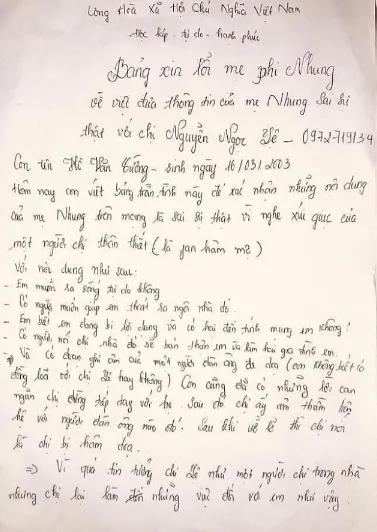 Cộng Hoà Xã Hội Chủ Nghĩa Việt Nam
Độc lập - tự do - hạnh phúc
Bảng xin lỗi mẹ phi Nhung
về việc đưa thông tin của mẹ Nhung sai sự
thật với chị Nguyễn Ngọc - 0972719134
Con tên Hồ Văn Cường - sinh ngày 16/03/2003
Hôm nay con viết bảng tràn tình này để xác nhận những nội dung
của mẹ Nhung trên mạng là sai sự thật vì nghe xúi giục của
một người chị thân thiết (là fan hâm mộ)
Với nội dung như sau:
- Em muốn ra sống tự do không
- Có người muốn giúp em thoát ra ngôi nhà đó.
- Em biết em đang bị lợi dụng và có hai đến tính mạng em không?
- Có người nói chị nhà đó sẽ bán thân em và làm hại gia đình em.
Và có đoạn ghi âm của một người đàn ông đe doạ (con không biết có
đồng loã với chị hay không) Con cũng đã có những lời can
ngăn chị đừng tiếp tay với họ. Sau đó chị ấy âm thầm liên
hệ với người đàn ông nào đó. Sau khi về lễ thì chị nói
là chị bị hâm doạ.
⇒ Vì quá tin tưởng chị như một người chị trong nhà
nhưng chị lại làm những vụ đối với em như vậy.